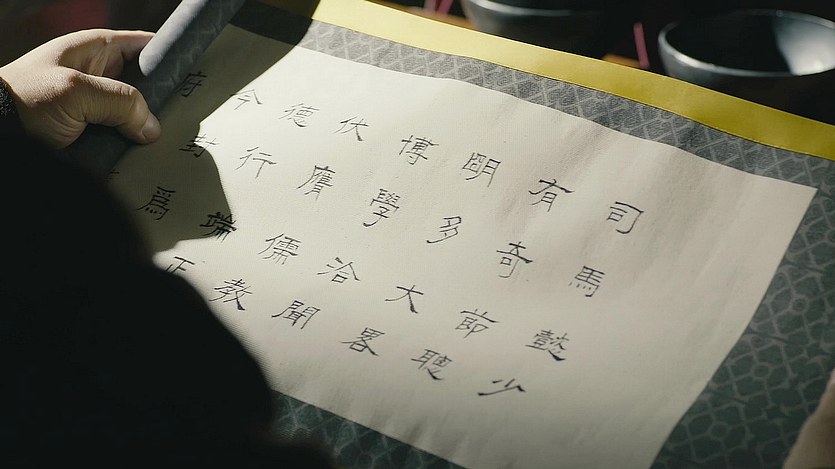 司馬懿少
有奇節聰
明多大畧
博學洽聞
伏膺儒教
德行端正
今對爲
府